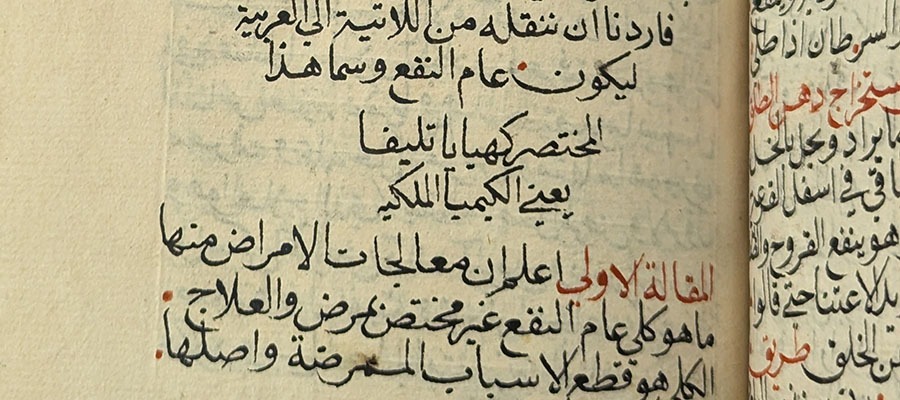 فاردنا ان ننقله من اللاتنية الي العربية
ليكون عام النفع وسما هذا
المختصر كهيايا تليفا
يعني الكيميا الملكيه
المقالة الاولي اعلم ان معالجات الامراض منها
ما هو كلي عام النفع غير مختص بمرض والعلاج
الكلي هو قطع الاسباب الممرضة واصلها
السرطان اذا طلي
دهن
ما يراد ويجل بالخل
باقي في اسفل
وهو ينفع القروح
حتي
من الخلف طريق